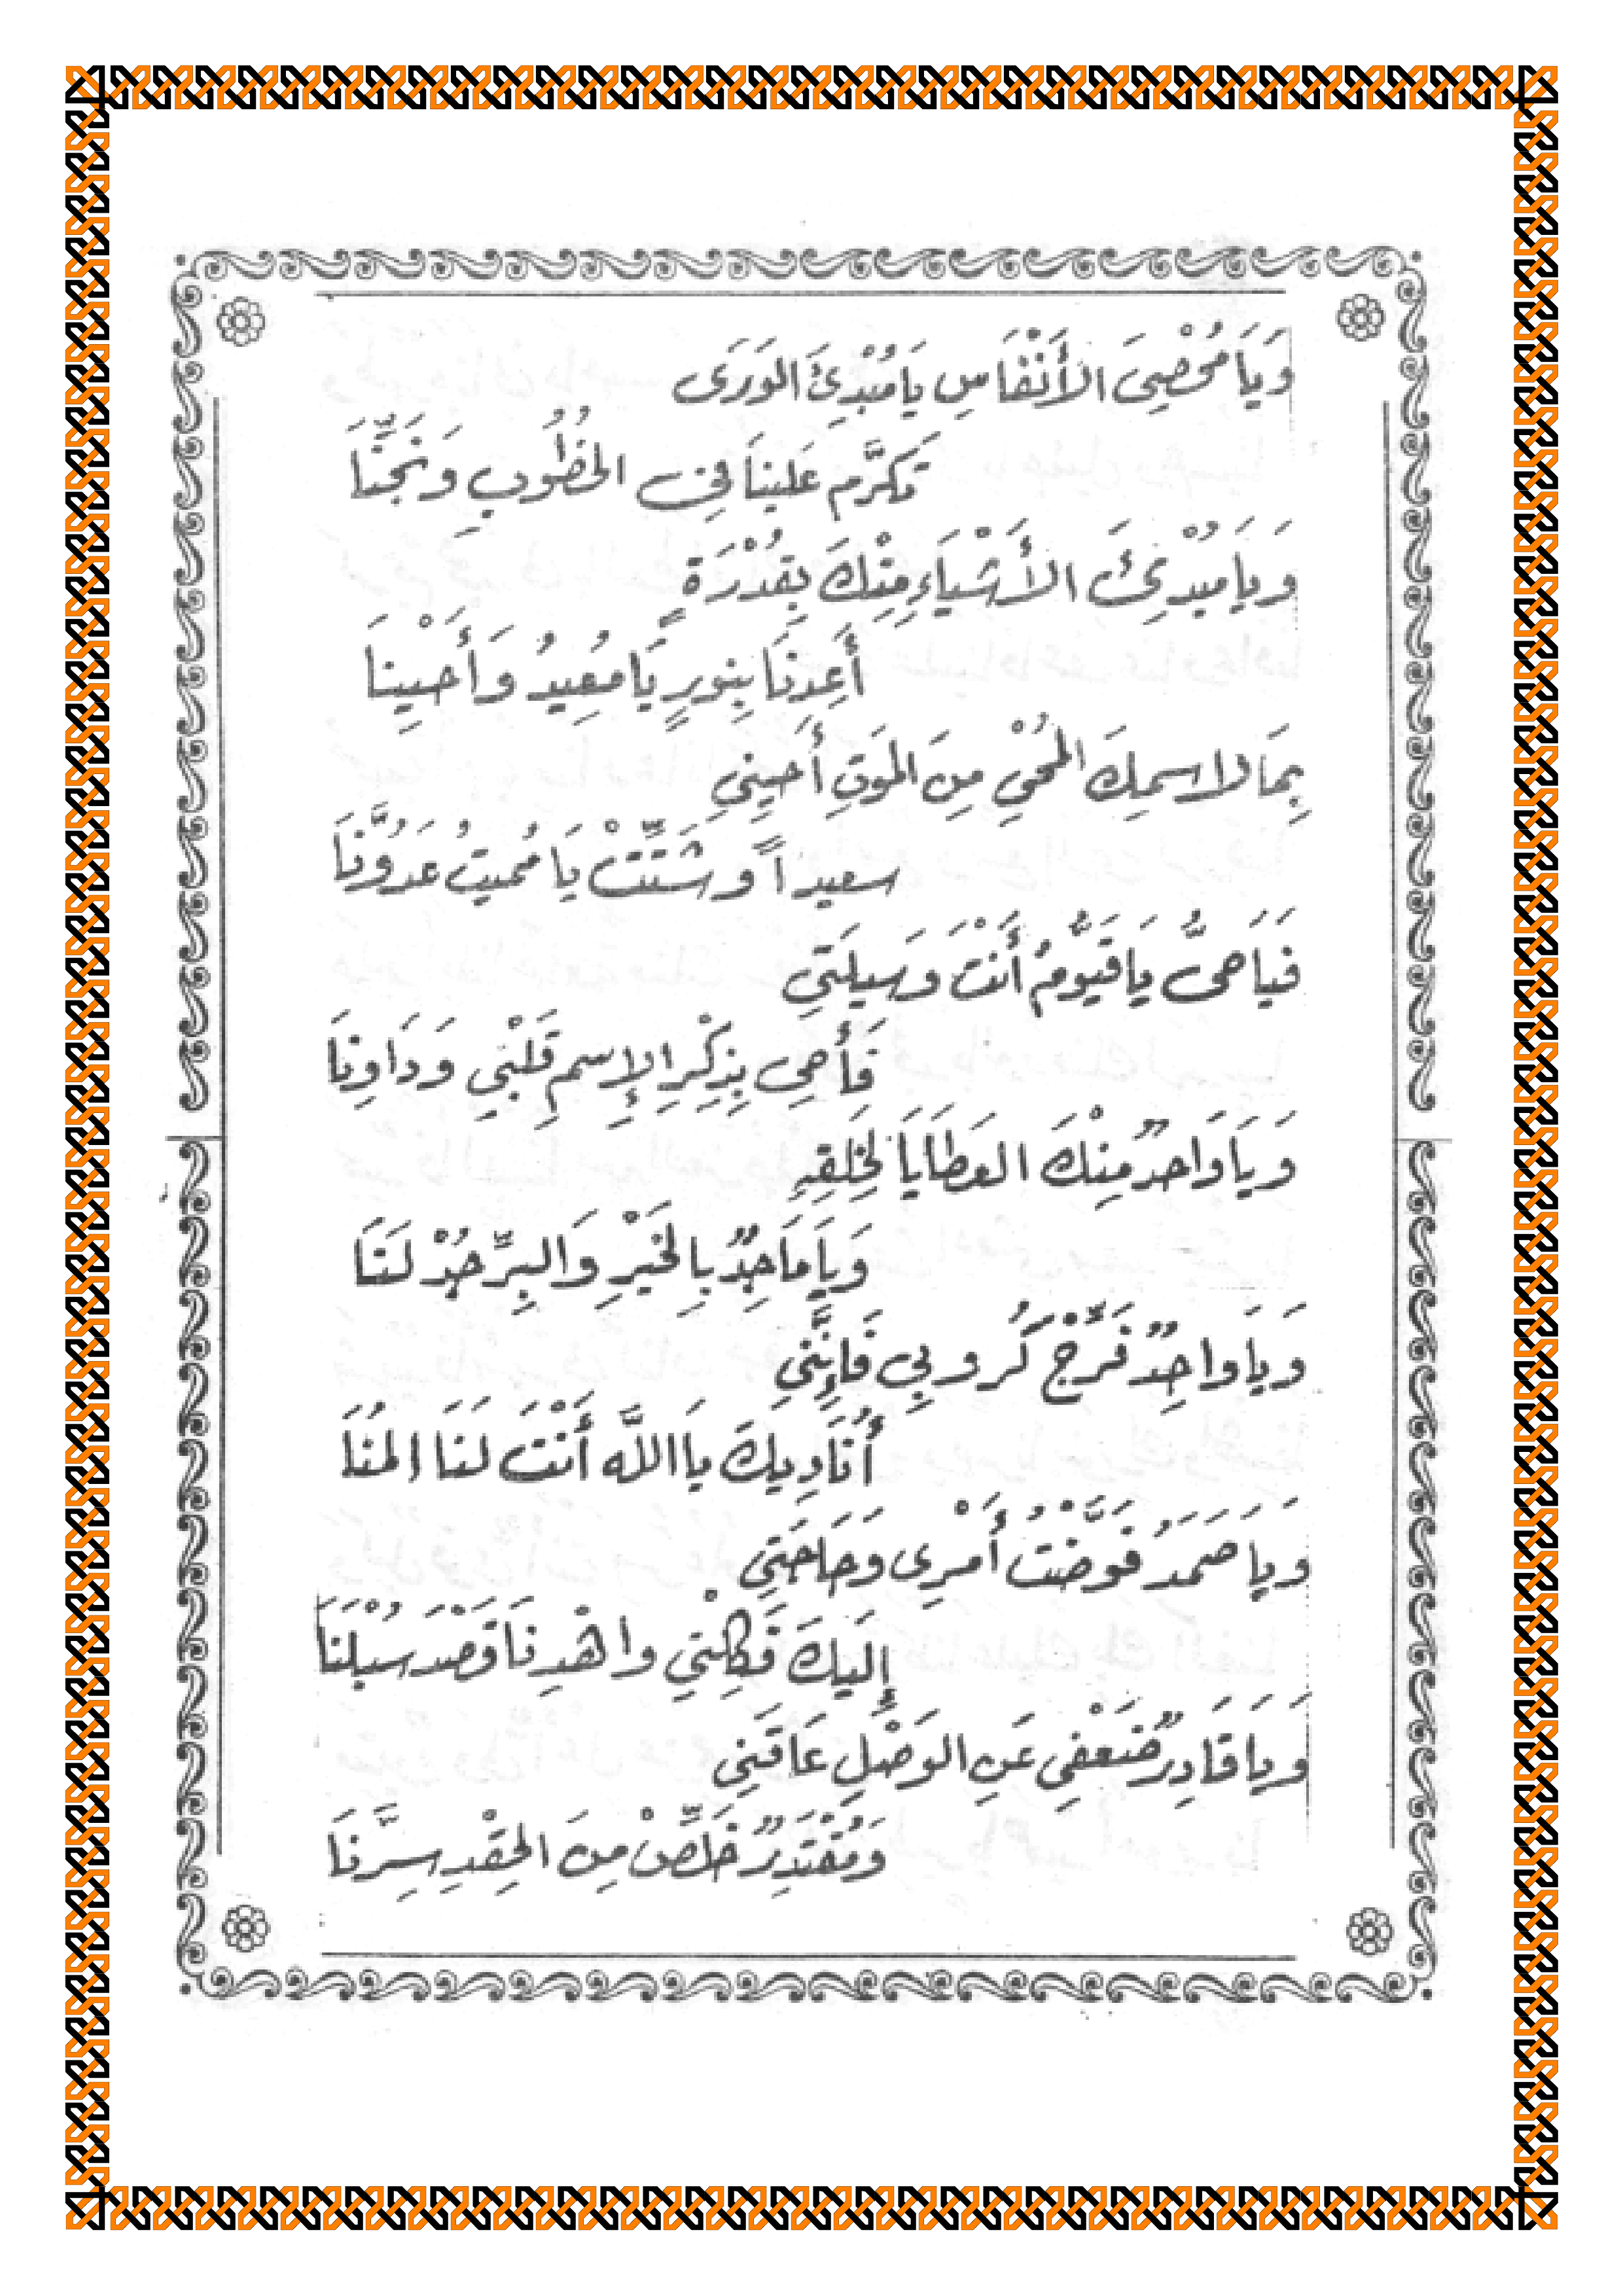 وَيَا مُحْصِيَ الأَنْفَاسِ يَا مُبْدِئَ الوَرَى
تَكَرَّم عَلَينَا فِي الخُطُوبِ وَنَجِّنَا
وَيَا مُبْدِئَ الأَشْيَاءِ مِنْكَ بِقُدْرَةٍ
أَعِدنَا بِنورٍ يَا مُعِيدُ وَأَحْيِنَا
بِمَا لاسمِكَ المُحْيِ مِنَ المَوتِ أَحيِنِي
سعيداً وشَتِّتْ يَا مُميتُ عَدُوَّنَا
فَيَا حَيُّ يَا قَيُّومُ أَنْتَ وَسِيلَتِي
فَأَحيِ بِذِكْرِ الإِسمِ قَلْبِي وَدَاوِنَا
وَيَا وَاحدٌ مِنْكَ العَطَايَا لِخَلقِهِ
وَيَا مَاجِدٌ بِالخَيْرِ وَالبِرِّ جُدْ لَنَا
وَيَا واحِدٌ فَرِّجْ كُروبِي فَإِنَّنِي
أُنَادِيكَ يَا اللَّه أَنْتَ لَنَا المُنَا
وَيَا صَمَدُ فَوَّضْتُ أَمْرِى وَحَاجَتِي
إِلَيكَ فَكِلْنِي واهْدِنَا قَصْدَ سُبْلِنَا
وَيَا قَادِرٌ ضَعْفِي عَنِ الوَصْلِ عَاقَنِي
وَمُقْتَدِرٌ خَلِّصْ مِنَ الحِقْدِ سِرَّنَا